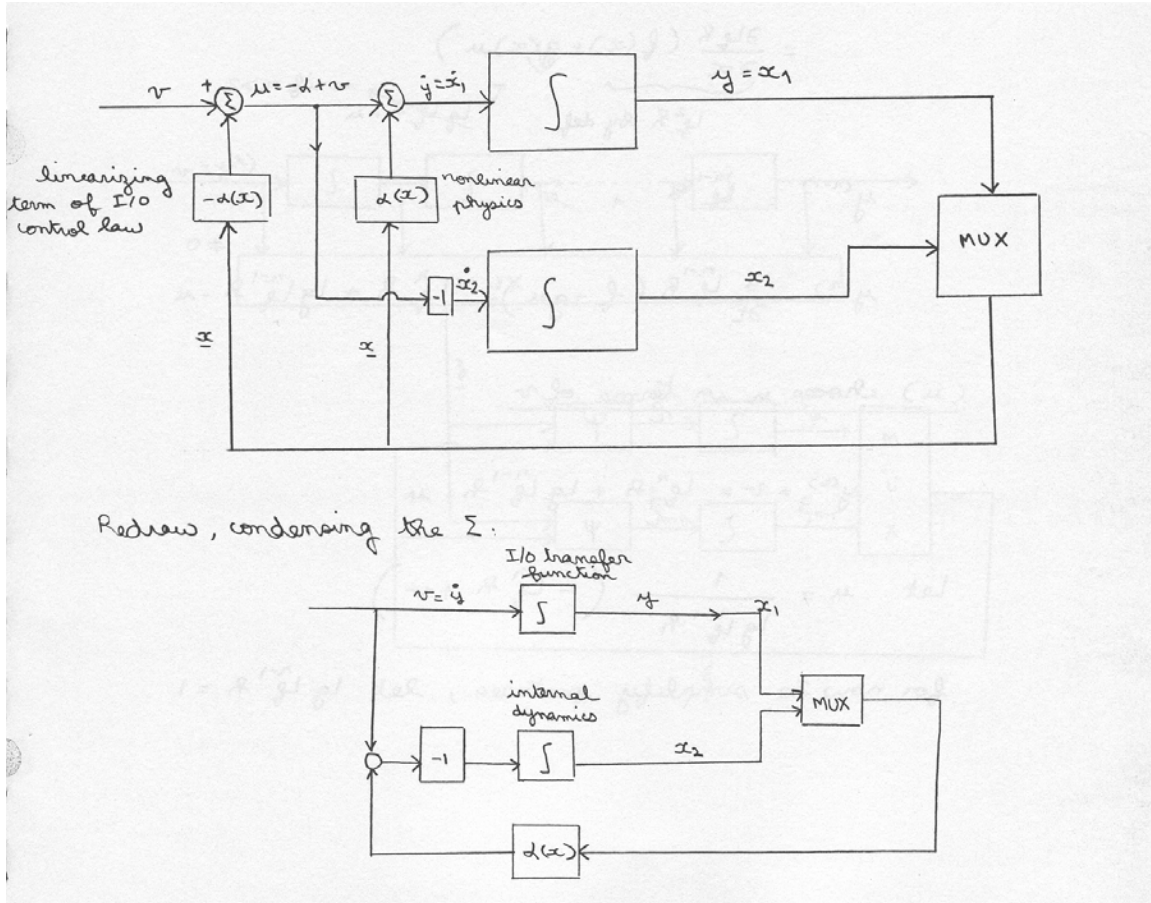 v
+
Σ
u=-α+v
Σ
ẏ=ẋ₁
∫
y=x₁
linearizing
term of I/O
control law
-α(x)
α(x)
nonlinear
physics
MUX
-1
ẋ₂
∫
x₂
x
x
Redraw, condensing the Σ:
I/O transfer
function
v=ẏ
∫
y
x₁
internal
dynamics
MUX
-1
∫
x₂
α(x)